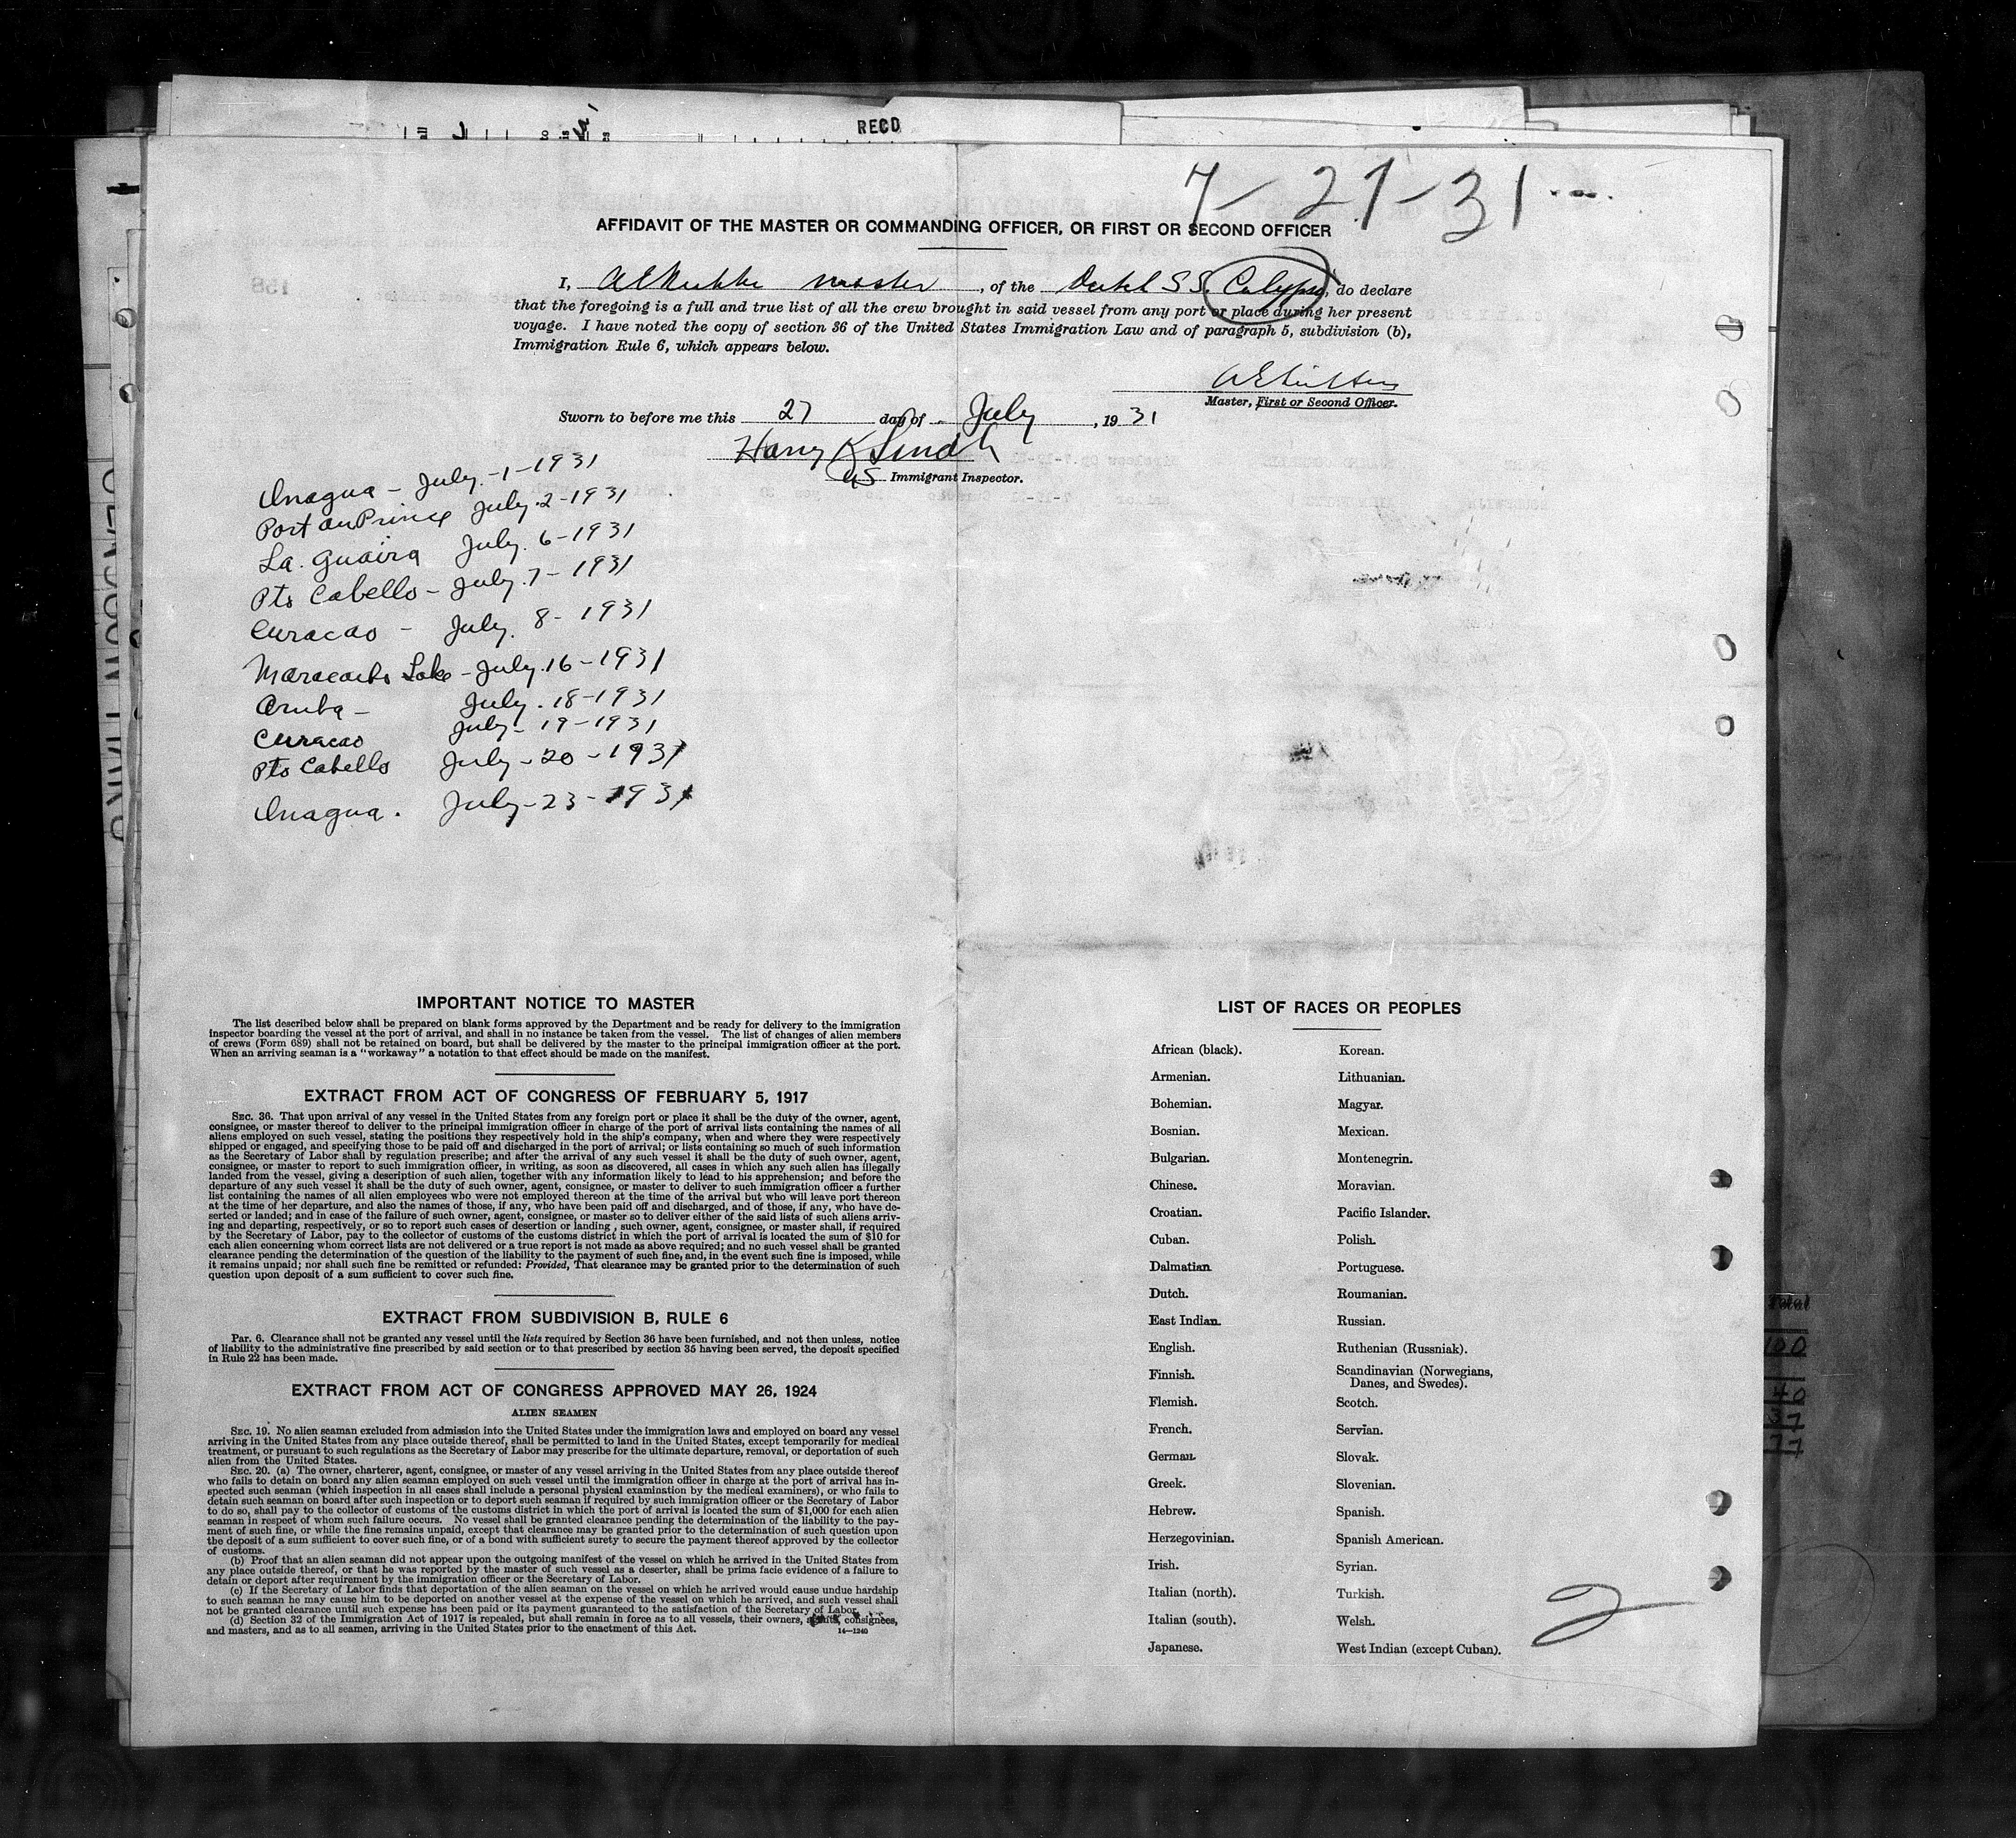 RECD
7-27-31
AFFIDAVIT OF THE MASTER OR COMMANDING OFFICER, OR FIRST OR SECOND OFFICER
I, master, of the Dutch S S. Calypso, do declare
that the foregoing is a full and true list of all the crew brought in said vessel from any port or place during her present
voyage. I have noted the copy of section 36 of the United States Immigration Law and of paragraph 5, subdivision (b),
Immigration Rule 6, which appears below.
Master, First or Second Officer.
Sworn to before me this 27 day of July, 1931
Harry K
US Immigrant Inspector.
Inagua - July.-1-1931
Port au Prince July.2-1931
La. Guaira July. 6-1931
Pto Cabello - July.7-1931
Curacao - July. 8-1931
Maracaibo Lake - July.16-1931
Aruba - July. 18-1931
Curacao July- 19-1931
Pto Cabello July-20-1931
Inagua. July-23-1931
IMPORTANT NOTICE TO MASTER
The list described below shall be prepared on blank forms approved by the Department and be ready for delivery to the immigration
inspector boarding the vessel at the port of arrival, and shall in no instance be taken from the vessel. The list of changes of alien members
of crews (Form 689) shall not be retained on board, but shall be delivered by the master to the principal immigration officer at the port.
When an arriving seaman is a "workaway" a notation to that effect should be made on the manifest.
EXTRACT FROM ACT OF CONGRESS OF FEBRUARY 5, 1917
SEC. 36. That upon arrival of any vessel in the United States from any foreign port or place it shall be the duty of the owner, agent,
consignee, or master thereof to deliver to the principal immigration officer in charge of the port of arrival lists containing the names of all
aliens employed on such vessel, stating the positions they respectively hold in the ship's company, when and where they were respectively
shipped or engaged, and specifying those to be paid off and discharged in the port of arrival; or lists containing so much of such information
as the Secretary of Labor shall by regulation prescribe; and after the arrival of any such vessel it shall be the duty of such owner, agent,
consignee, or master to report to such immigration officer, in writing, as soon as discovered, all cases in which any such alien has illegally
landed from the vessel, giving a description of such alien, together with any information likely to lead to his apprehension; and before the
departure of any such vessel it shall be the duty of such owner, agent, consignee, or master to deliver to such immigration officer a further
list containing the names of all alien employees who were not employed thereon at the time of the arrival but who will leave port thereon
at the time of her departure, and also the names of those, if any, who have been paid off and discharged, and of those, if any, who have de-
serted or landed; and in case of the failure of such owner, agent, consignee, or master so to deliver either of the said lists of such aliens arriv-
ing and departing, respectively, or so to report such cases of desertion or landing, such owner, agent, consignee, or master shall, if required
by the Secretary of Labor, pay to the collector of customs of the customs district in which the port of arrival is located the sum of $10 for
each alien concerning whom correct lists are not delivered or a true report is not made as above required; and no such vessel shall be granted
clearance pending the determination of the question of the liability to the payment of such fine, and, in the event such fine is imposed, while
it remains unpaid; nor shall such fine be remitted or refunded: Provided, That clearance may be granted prior to the determination of such
question upon deposit of a sum sufficient to cover such fine.
EXTRACT FROM SUBDIVISION B, RULE 6
Par. 6. Clearance shall not be granted any vessel until the lists required by Section 36 have been furnished, and not then unless, notice
of liability to the administrative fine prescribed by said section or to that prescribed by section 35 having been served, the deposit specified
in Rule 22 has been made.
EXTRACT FROM ACT OF CONGRESS APPROVED MAY 26, 1924
ALIEN SEAMEN
SEC. 19. No alien seaman excluded from admission into the United States under the immigration laws and employed on board any vessel
arriving in the United States from any place outside thereof, shall be permitted to land in the United States, except temporarily for medical
treatment, or pursuant to such regulations as the Secretary of Labor may prescribe for the ultimate departure, removal, or deportation of such
alien from the United States.
SEC. 20. (a) The owner, charterer, agent, consignee, or master of any vessel arriving in the United States from any place outside thereof
who fails to detain on board any alien seaman employed on such vessel until the immigration officer in charge at the port of arrival has in-
spected such seaman (which inspection in all cases shall include a personal physical examination by the medical examiners), or who fails to
detain such seaman on board after such inspection or to deport such seaman if required by such immigration officer or the Secretary of Labor
to do so, shall pay to the collector of customs of the customs district in which the port of arrival is located the sum of $1,000 for each alien
seaman in respect of whom such failure occurs. No vessel shall be granted clearance pending the determination of the liability to the pay-
ment of such fine, or while the fine remains unpaid, except that clearance may be granted prior to the determination of such question upon
the deposit of a sum sufficient to cover such fine, or of a bond with sufficient surety to secure the payment thereof approved by the collector
of customs.
(b) Proof that an alien seaman did not appear upon the outgoing manifest of the vessel on which he arrived in the United States from
any place outside thereof, or that he was reported by the master of such vessel as a deserter, shall be prima facie evidence of a failure to
detain or deport after requirement by the immigration officer or the Secretary of Labor.
(c) If the Secretary of Labor finds that deportation of the alien seaman on the vessel on which he arrived would cause undue hardship
to such seaman he may cause him to be deported on another vessel at the expense of the vessel on which he arrived, and such vessel shall
not be granted clearance until such expense has been paid or its payment guaranteed to the satisfaction of the Secretary of Labor.
(d) Section 32 of the Immigration Act of 1917 is repealed, but shall remain in force as to all vessels, their owners, agents, consignees,
and masters, and as to all seamen, arriving in the United States prior to the enactment of this Act.
14—1240
LIST OF RACES OR PEOPLES
African (black). Korean.
Armenian. Lithuanian.
Bohemian. Magyar.
Bosnian. Mexican.
Bulgarian. Montenegrin.
Chinese. Moravian.
Croatian. Pacific Islander.
Cuban. Polish.
Dalmatian. Portuguese.
Dutch. Roumanian.
East Indian. Russian.
English. Ruthenian (Russniak).
Finnish. Scandinavian (Norwegians,
Danes, and Swedes).
Flemish. Scotch.
French. Servian.
German. Slovak.
Greek. Slovenian.
Hebrew. Spanish.
Herzegovinian. Spanish American.
Irish. Syrian.
Italian (north). Turkish.
Italian (south). Welsh.
Japanese. West Indian (except Cuban).
2
Total
100
40